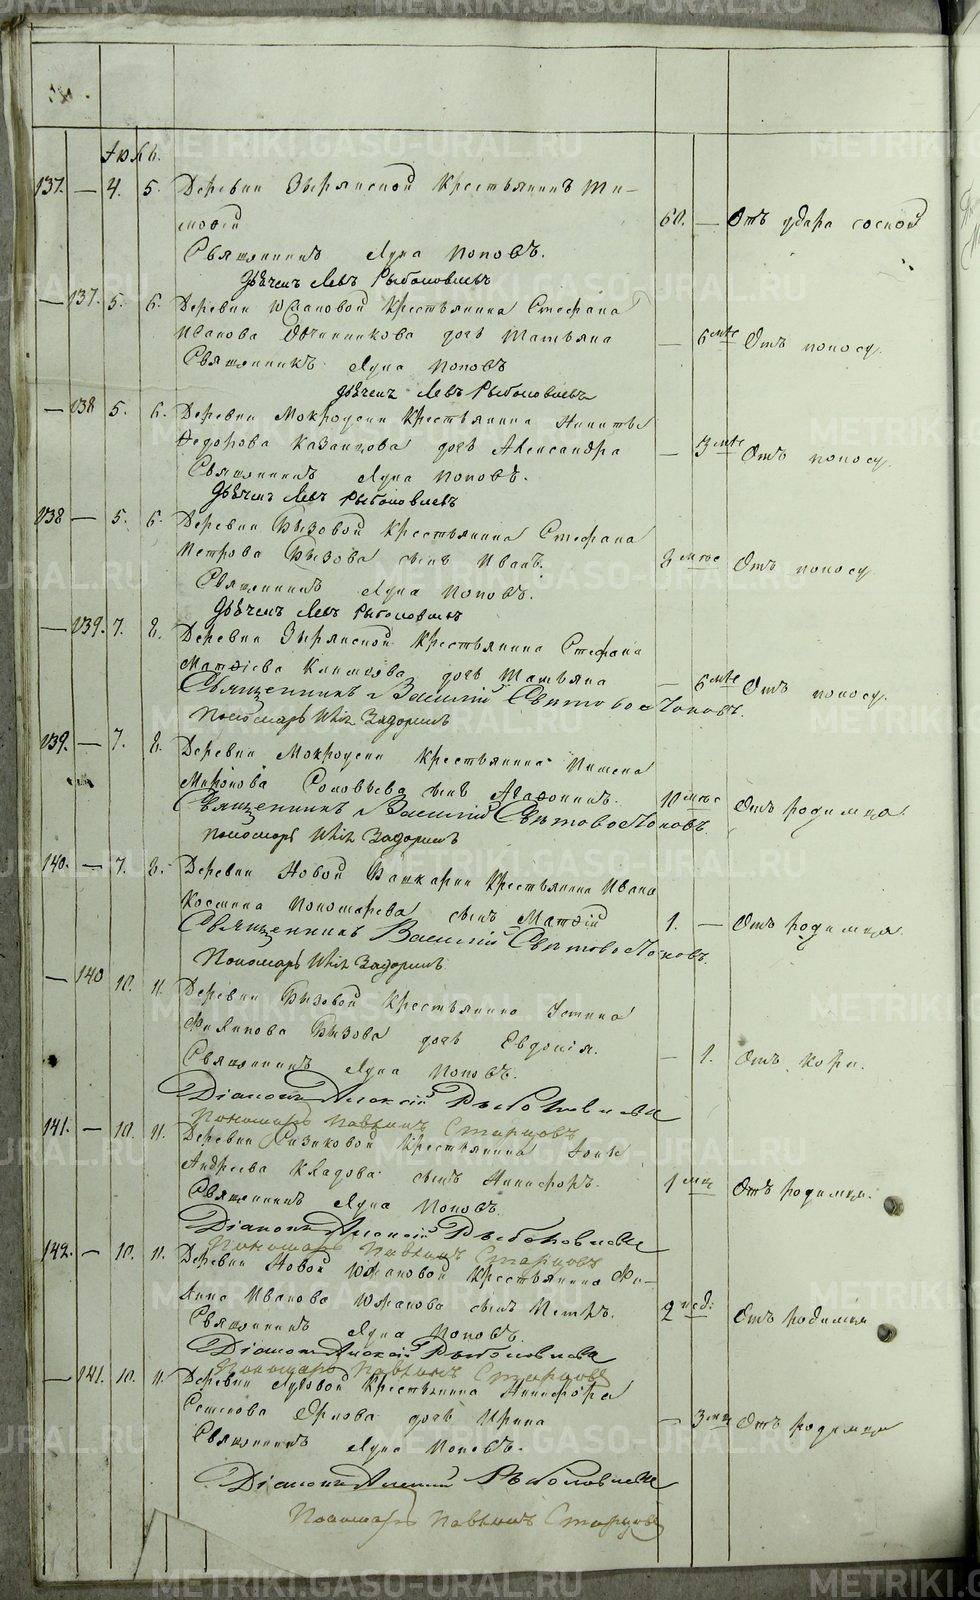 Июль.
137. — 4. 5. Деревни Зырянской Крестьянинъ Ти-
моѳей 60. — Отъ удара сосной
Священникъ Лука Поповъ.
Дьячекъ Левъ Рыболовлевъ
— 137. 5. 6. Деревни Крестьянина Стефана
Иванова Овчинникова дочь Татьяна — 6 мѣс Отъ поносу.
Священникъ Лука Поповъ
Дьячекъ Левъ Рыболовлевъ
— 138 5. 6. Деревни Мокроуски Крестьянина Никиты
Федорова Казанцова дочь Александра — 3 мѣс Отъ поносу.
Священникъ Лука Поповъ.
Дьячекъ Левъ Рыболовлевъ
138 — 5. 6. Деревни Бызовой Крестьянина Стефана
Петрова Бызова сынъ Иванъ. мѣс Отъ поносу
Священникъ Лука Поповъ.
Дьячекъ Левъ Рыболовлевъ
— 139. 7. 8. Деревни Зырянской Крестьянина Стефана
Матѳіева дочь Татьяна — 6 мѣс Отъ поносу.
Священникъ Василій Свѣтовостоковъ.
Пономарь Задоринъ
139. — 7. 8. Деревни Мокроуски Крестьянина Пимена
Миронова Соловьева сынъ Агаѳоникъ. 10 мѣс Отъ родимца.
Священникъ Василій Свѣтовостоковъ.
Пономарь Задоринъ
140. — 7. 8. Деревни Новой Башкарки Крестьянина Ивана
Космина Пономарева сынъ Матѳій 1. — Отъ родимца.
Священникъ Василій Свѣтовостоковъ.
Пономарь Задоринъ
— 140 10. 11. Деревни Бызовой Крестьянина Устина
Филипова Бызова дочь Евдокія. — 1. Отъ кори.
Священникъ Лука Поповъ.
Діаконъ Алексій Рыболовлевъ
Пономарь Павлинъ Старцовъ
141. — 10. 11. Деревни Крестьянина Іоны
Андреева Кладова сынъ Никифоръ. 1 мц Отъ родимца.
Священникъ Лука Поповъ.
Діаконъ Алексій Рыболовлевъ
Пономарь Павлинъ Старцовъ
142. — 10. 11. Деревни Новой Крестьянина Фи-
липа Иванова сынъ Петръ. 2 нед: Отъ родимца
Священникъ Лука Поповъ.
Діаконъ Алексій Рыболовлевъ
Пономарь Павлинъ Старцовъ
— 141. 10. 11. Деревни Луговой Крестьянина Никифора
Орлова дочь Ирина — 3 мц Отъ родимца
Священникъ Лука Поповъ.
Діаконъ Алексій Рыболовлевъ
Пономарь Павлинъ Старцовъ
METRIKI.GASO-URAL.RU